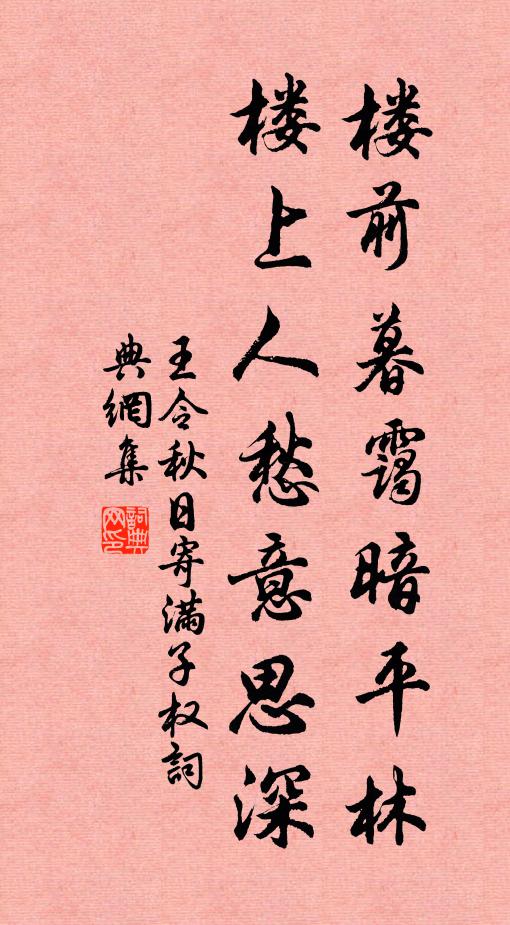 楼前暮靄暗平林
楼上人愁意思深
王令秋日寄满子权詞
典網集
詞典
网印